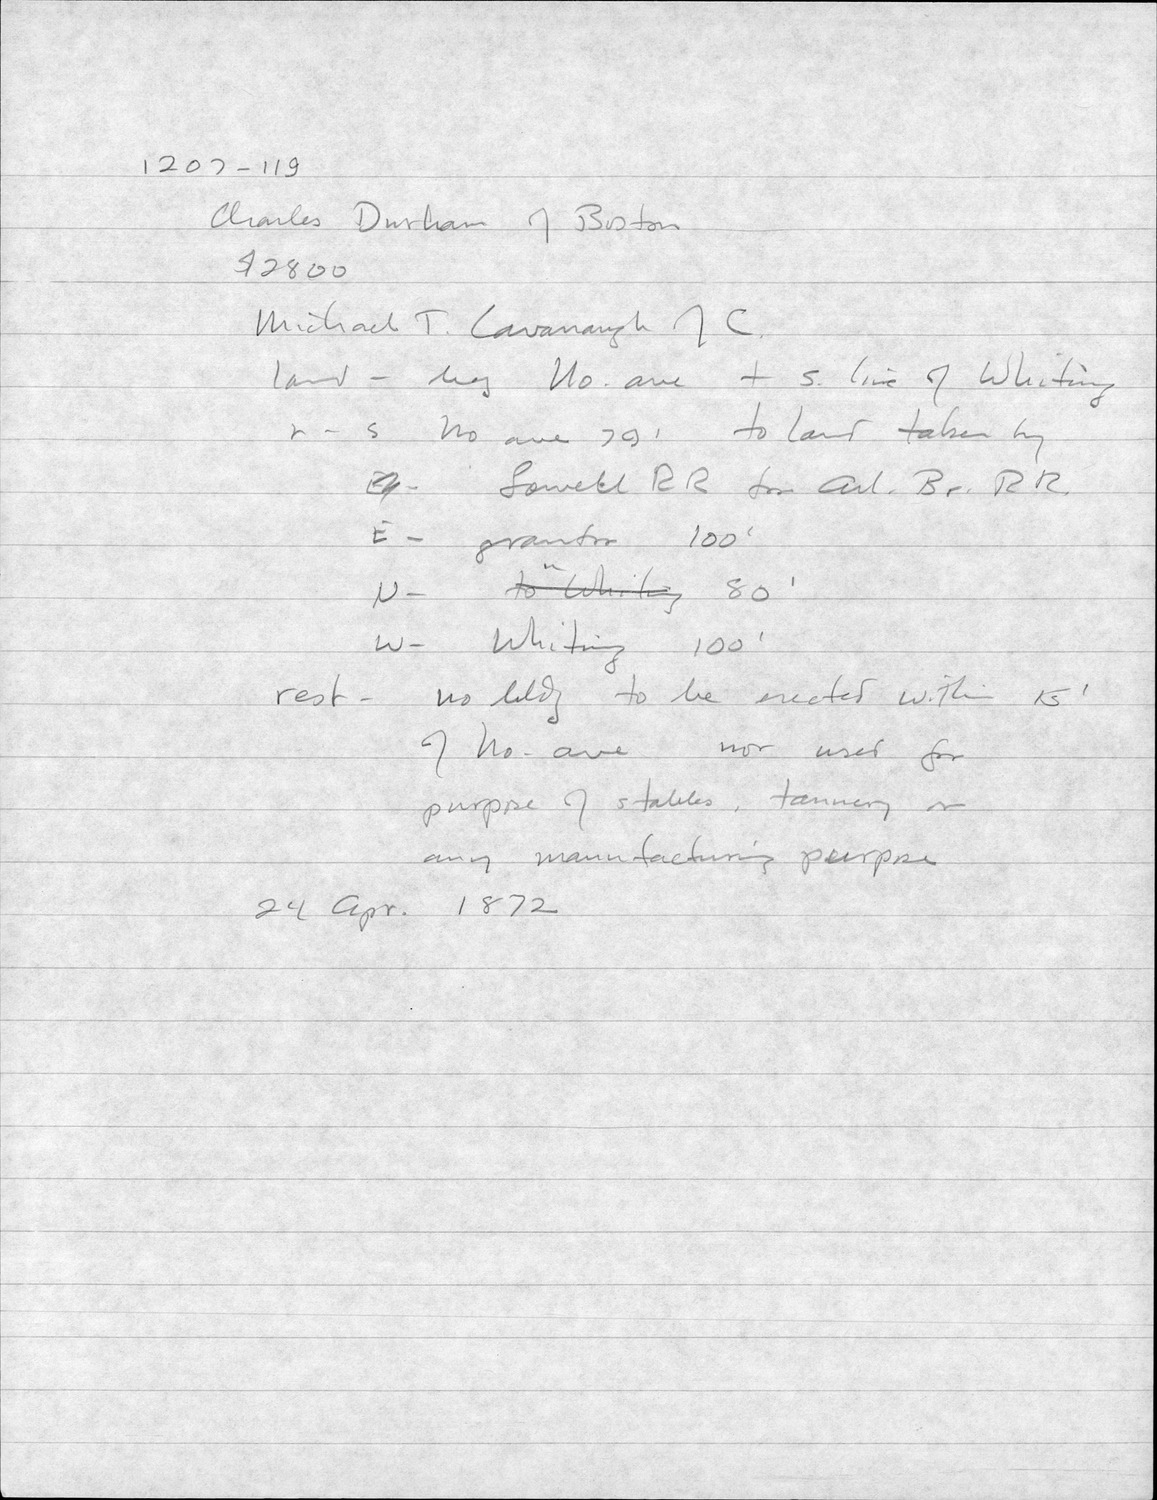 1207-119
Charles Durham of Boston
$2800
Michael T. Cavanaugh of C.
land - beg No. ave + s. line of Whiting
r - s No ave 79' to land taken by
Lowell RR for Arl. Br. RR.
E - grantor 100'
N - " to Whiting 80'
W- Whiting 100'
rest - no bldg to be erected within 15'
of No. ave nor used for
purpose of stables, tannery or
any manufacturing purpose
24 Apr. 1872